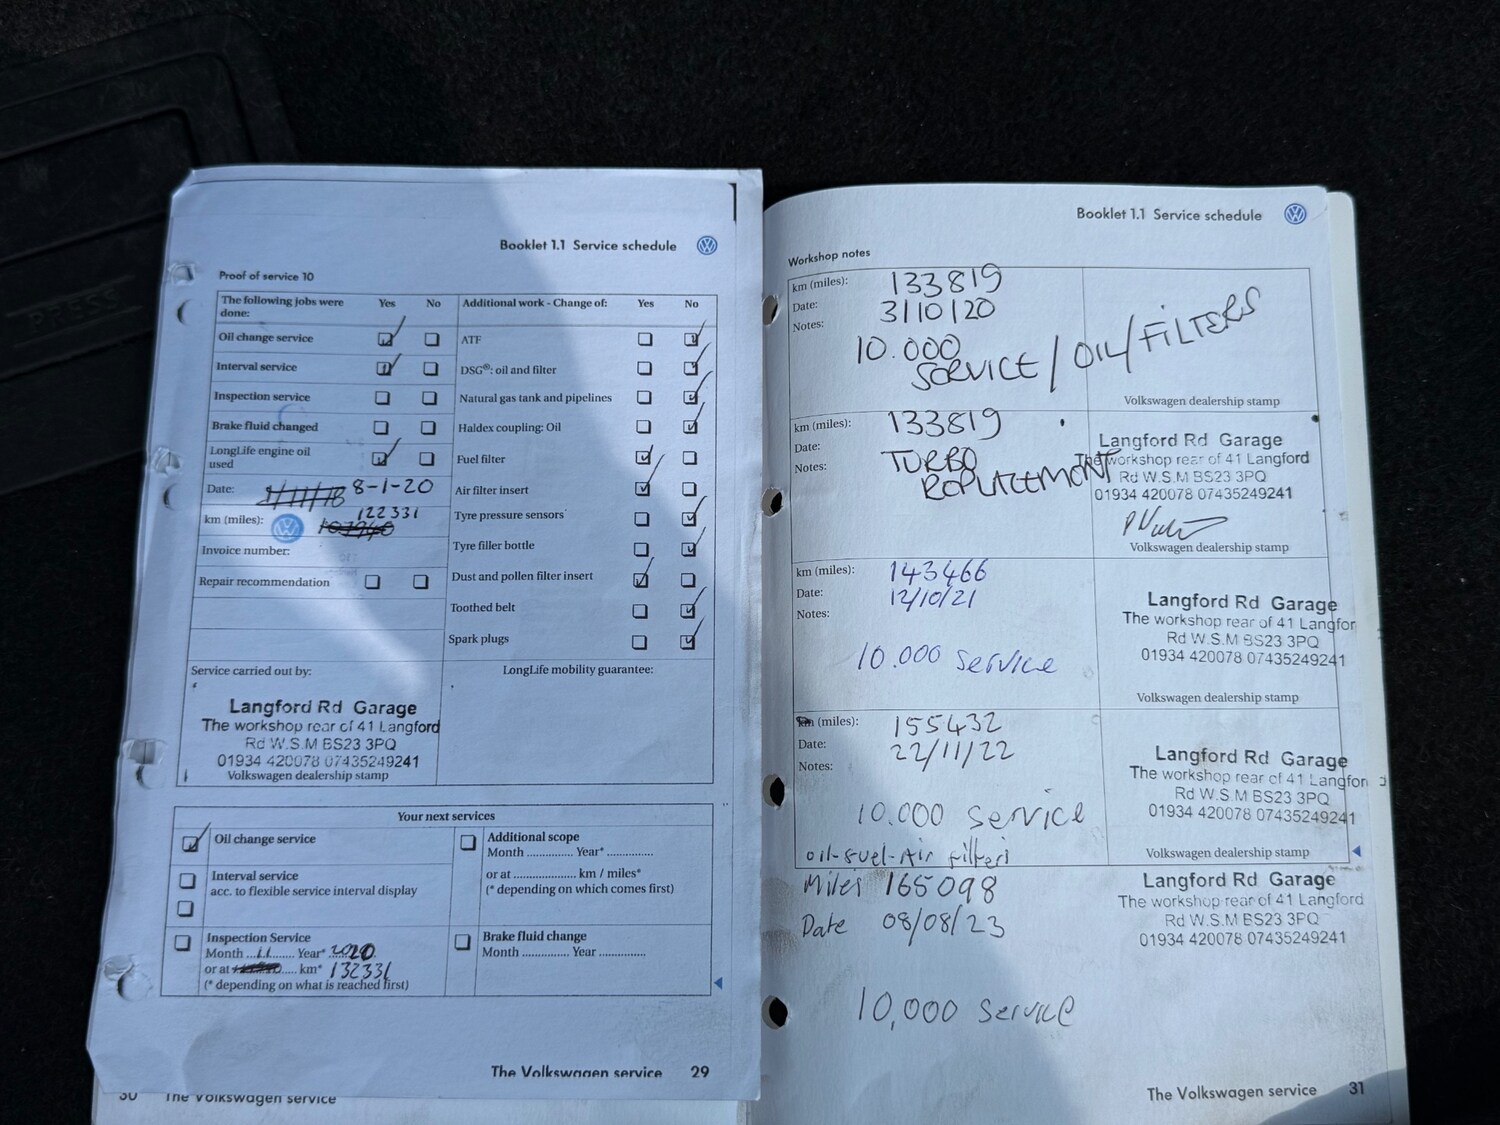 PRESS
Booklet 1.1 Service schedule
Proof of service 10
The following jobs were done: Yes No
Additional work - Change of: Yes No
Oil change service
ATF
Interval service
DSG®: oil and filter
Inspection service
Natural gas tank and pipelines
Brake fluid changed
Haldex coupling: Oil
LongLife engine oil used
Fuel filter
Date: 8-1-20
Air filter insert
km (miles): 122331
Tyre pressure sensors
Invoice number:
Tyre filler bottle
Repair recommendation
Dust and pollen filter insert
Toothed belt
Spark plugs
Service carried out by:
LongLife mobility guarantee:
Langford Rd Garage
The workshop rear of 41 Langford
Rd W.S.M BS23 3PQ
01934 420078 07435249241
Volkswagen dealership stamp
Your next services
Oil change service
Additional scope
Month ............... Year* ...............
Interval service
acc. to flexible service interval display
or at ..................... km / miles*
(* depending on which comes first)
Inspection Service
Month ...11....... Year* 2020
or at ..... km* 132331
(* depending on what is reached first)
Brake fluid change
Month ............... Year ...............
The Volkswagen service 29
30 The Volkswagen service
Booklet 1.1 Service schedule
Workshop notes
km (miles): 133819
Date: 3/10/20
Notes:
10.000
SERVICE / OIL/FILTERS
Volkswagen dealership stamp
km (miles): 133819
Date:
Notes: TURBO
REPLACEMENT
Langford Rd Garage
The workshop rear of 41 Langford
Rd W.S.M BS23 3PQ
01934 420078 07435249241
Volkswagen dealership stamp
km (miles): 143466
Date: 12/10/21
Notes:
10.000 Service
Langford Rd Garage
The workshop rear of 41 Langfor
Rd W.S.M BS23 3PQ
01934 420078 07435249241
Volkswagen dealership stamp
km (miles): 155432
Date: 22/11/22
Notes:
10.000 Service
oil-fuel-Air filters
Langford Rd Garage
The workshop rear of 41 Langford
Rd W.S.M BS23 3PQ
01934 420078 07435249241
Volkswagen dealership stamp
Miles 165098
Date 08/08/23
10,000 Service
Langford Rd Garage
The workshop rear of 41 Langford
Rd W.S.M BS23 3PQ
01934 420078 07435249241
The Volkswagen service 31